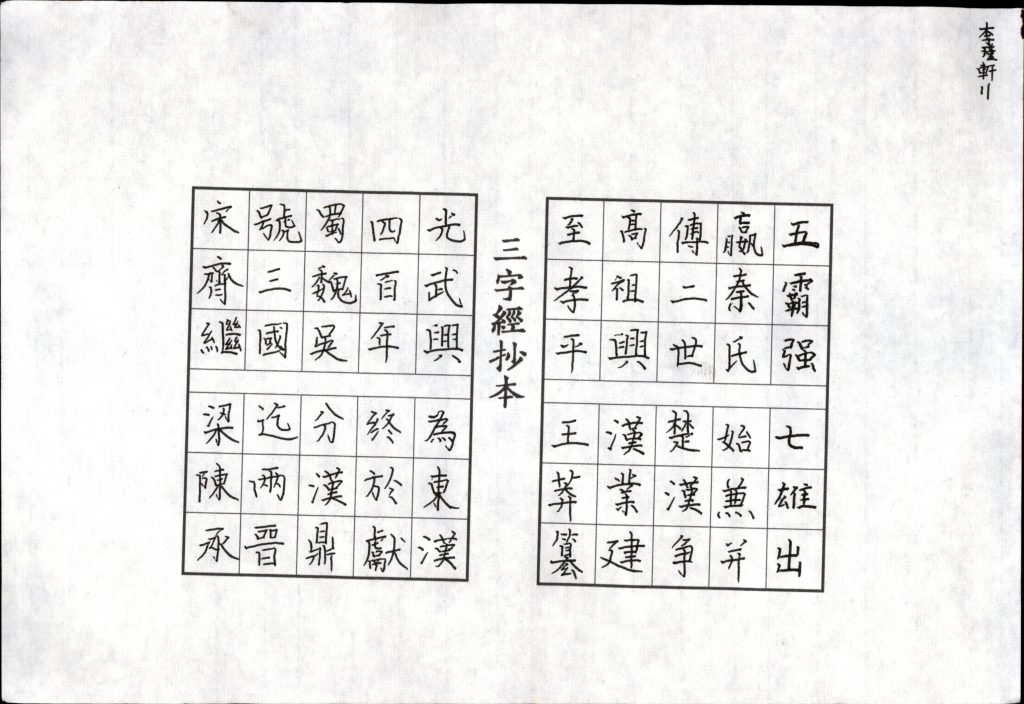 五霸强 七雄出
嬴秦氏 始兼并
傳二世 楚漢争
高祖興 漢業建
至孝平 王莽篡
三字經抄本
光武興 為東漢
四百年 終於獻
蜀魏吳 分漢鼎
號三國 迄兩晉
宋齊繼 梁陳承